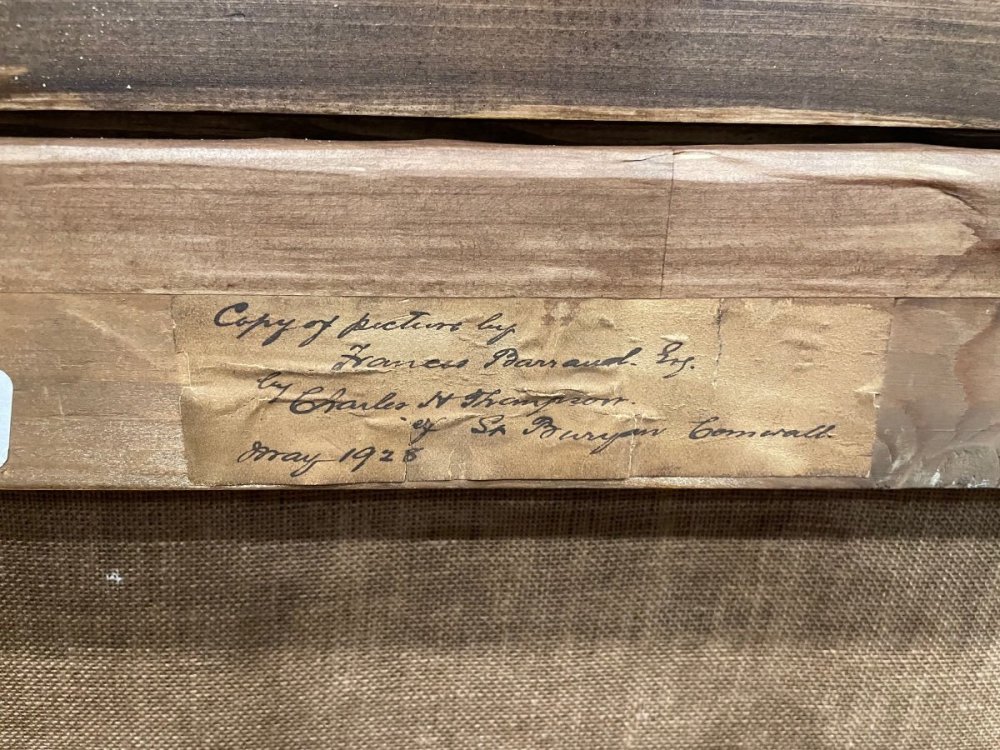 Copy of picture by
Francis Barraud. Esq.
by Charles H Thompson.
of St Buryan Cornwall.
May 1928